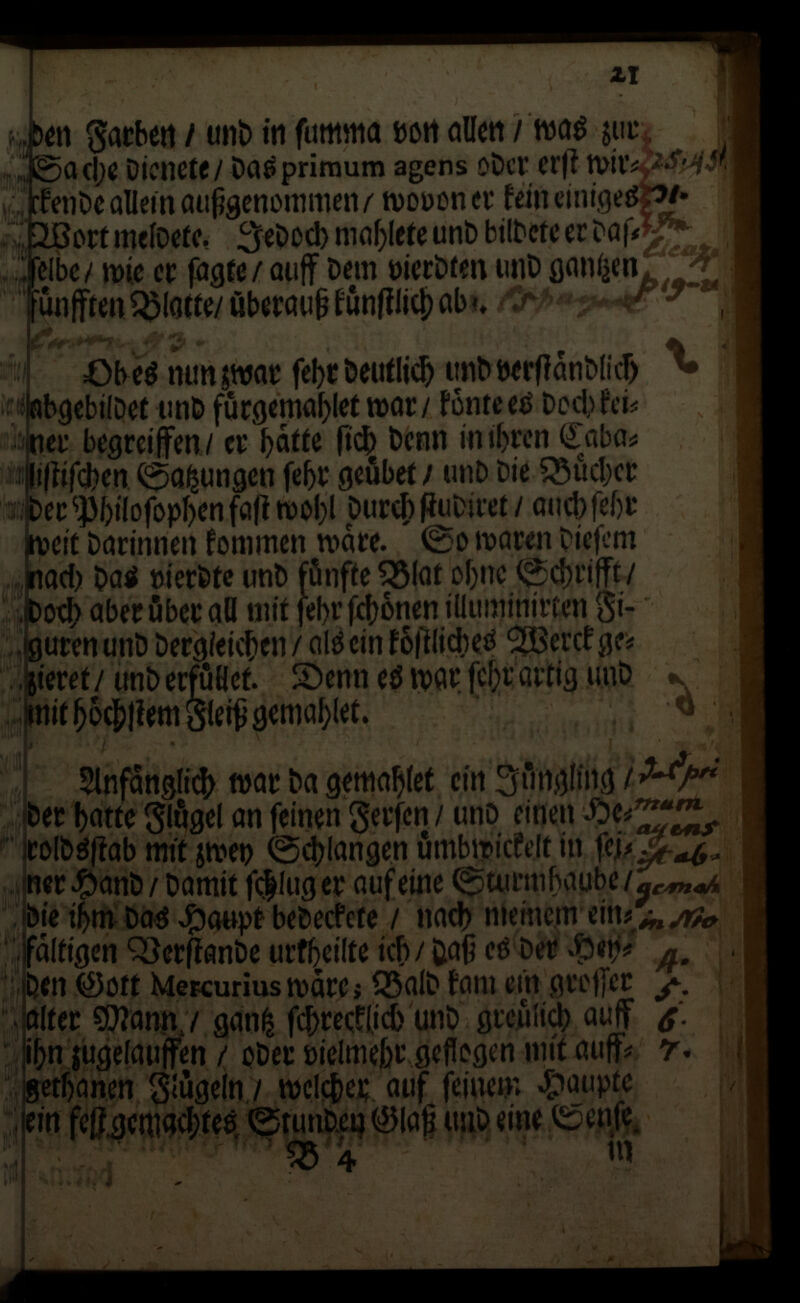 21
den Farben / und in ſumma von allen / was zur
Sache dienete / das primum agens oder erſt wir⸗
kende allein außgenommen / wovon er kein einiges
Wort meldete. Jedoch mahlete und bildete er daſ⸗
ſelbe / wie er ſagte / auff dem vierdten und gantzen
fuͤnfften Blatte / uͤberauß kuͤnſtlich ab.
Ob es nun zwar ſehr deutlich und verſtaͤndlich
abgebildet und fuͤrgemahlet war / koͤnte es doch kei⸗
ner begreiffen / er haͤtte ſich denn in ihren Caba⸗
liſtiſchen Satzungen ſehr geuͤbet / und die Buͤcher
der Philoſophen faſt wohl durch ſtudiret / auch ſehr
weit darinnen kommen waͤre. So waren dieſem
nach das vierdte und fuͤnfte Blat ohne Schrifft /
doch aber uͤber all mit ſehr ſchoͤnen illuminirten Fi-
guren und dergleichen / als ein koͤſtliches Werck ge⸗
zieret / und erfuͤllet. Denn es war ſehr artig und
mit hoͤchſtem Fleiß gemahlet.
Anfaͤnglich war da gemahlet ein Juͤngling /
der hatte Fluͤgel an ſeinen Ferſen / und einen He⸗
roldsſtab mit zwey Schlangen uͤmbwickelt in ſei⸗
ner Hand / damit ſchlug er auf eine Sturmhaube /
die ihm das Haupt bedeckete / nach meinem ein⸗
faͤltigen Verſtande urtheilte ich / daß es der Hey⸗
den Gott Mercurius waͤre; Bald kam ein groſſer
alter Mann / gantz ſchrecklich und greuͤlich auff
ihn zugelauffen / oder vielmehr geflogen mit auff⸗
gethanen Fluͤgeln / welcher auf ſeinem Haupte
ein feſt gemachtes Stunden Glaß und eine Senſe
B 4 in
4.
5.
6.
7.